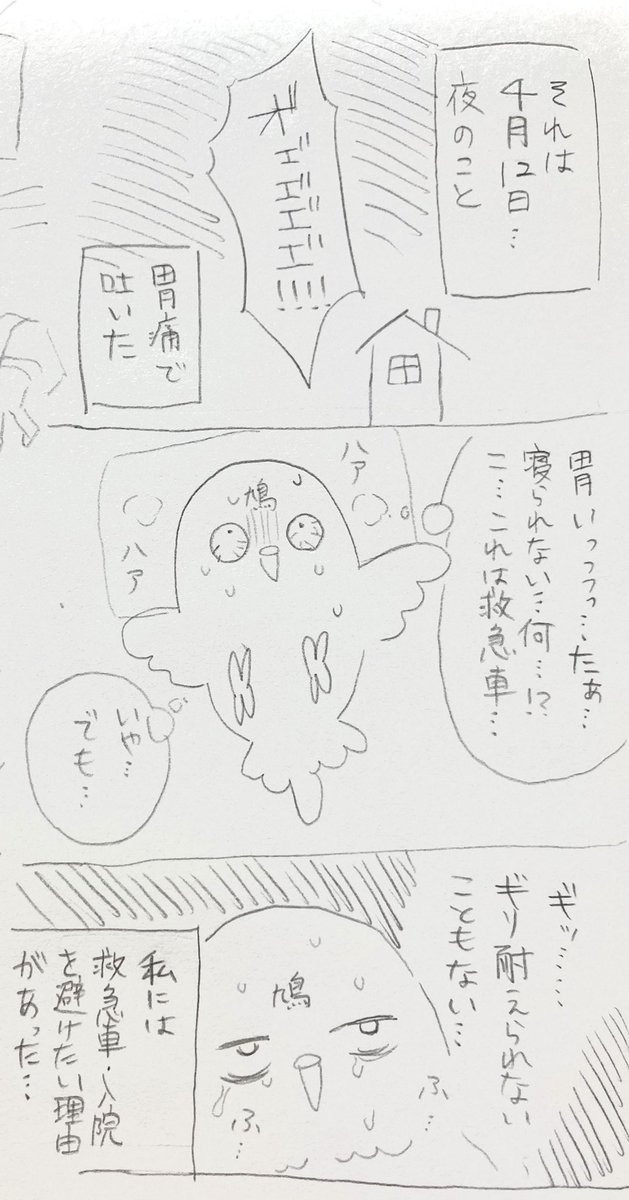 それは
4月12日…
夜のこと
オ゛ェ゛ェ゛ェ゛ェ゛!!!!
胃痛で
吐いた
胃いっつつっ…たぁ…
寝られない…何…!?
こ…これは救急車…
ハァ
鳩
ハァ
いや…
でも…
ギッ……
ギリ耐えられない
こともない…
鳩
ふ…
ふ…
私には
救急車・入院
を避けたい理由
があった…